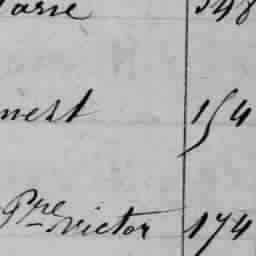 arie 548
nest 154
Pre Victor 174